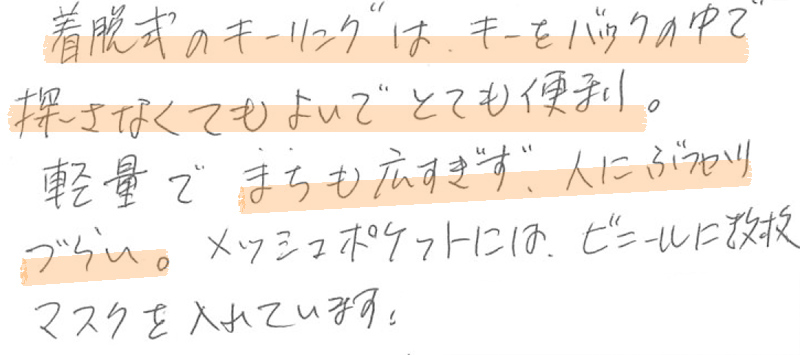 着脱式のキーリングは、キーをバックの中で
探さなくてもよいでとても便利。
軽量でまちも広すぎず、人にぶつかり
づらい。メッシュポケットには、ビニールに数枚
マスクを入れています。